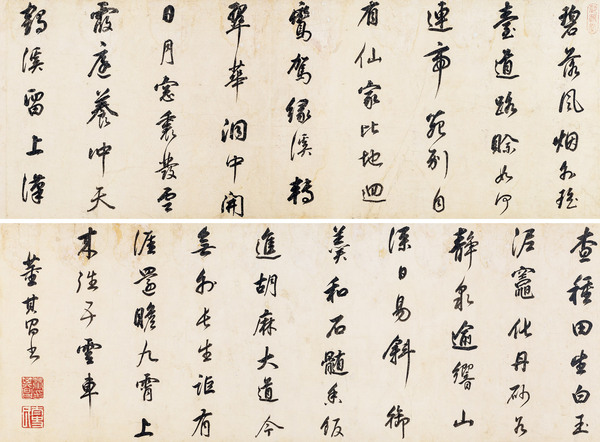 碧落風烟外瑤
臺道路賒如何
連帝苑別自
有仙家此地迴
鸞駕緣溪轉
翠華洞中開
日月窓裏發雲
霞庭養沖天
鶴溪留上漢
查種田生白玉
泥竈化丹砂谷
靜泉逾響山
深日易斜御
羹和石髓香飯
進胡麻大道今
無外長生詎有
涯還瞻九霄上
來往五雲車
董其昌書